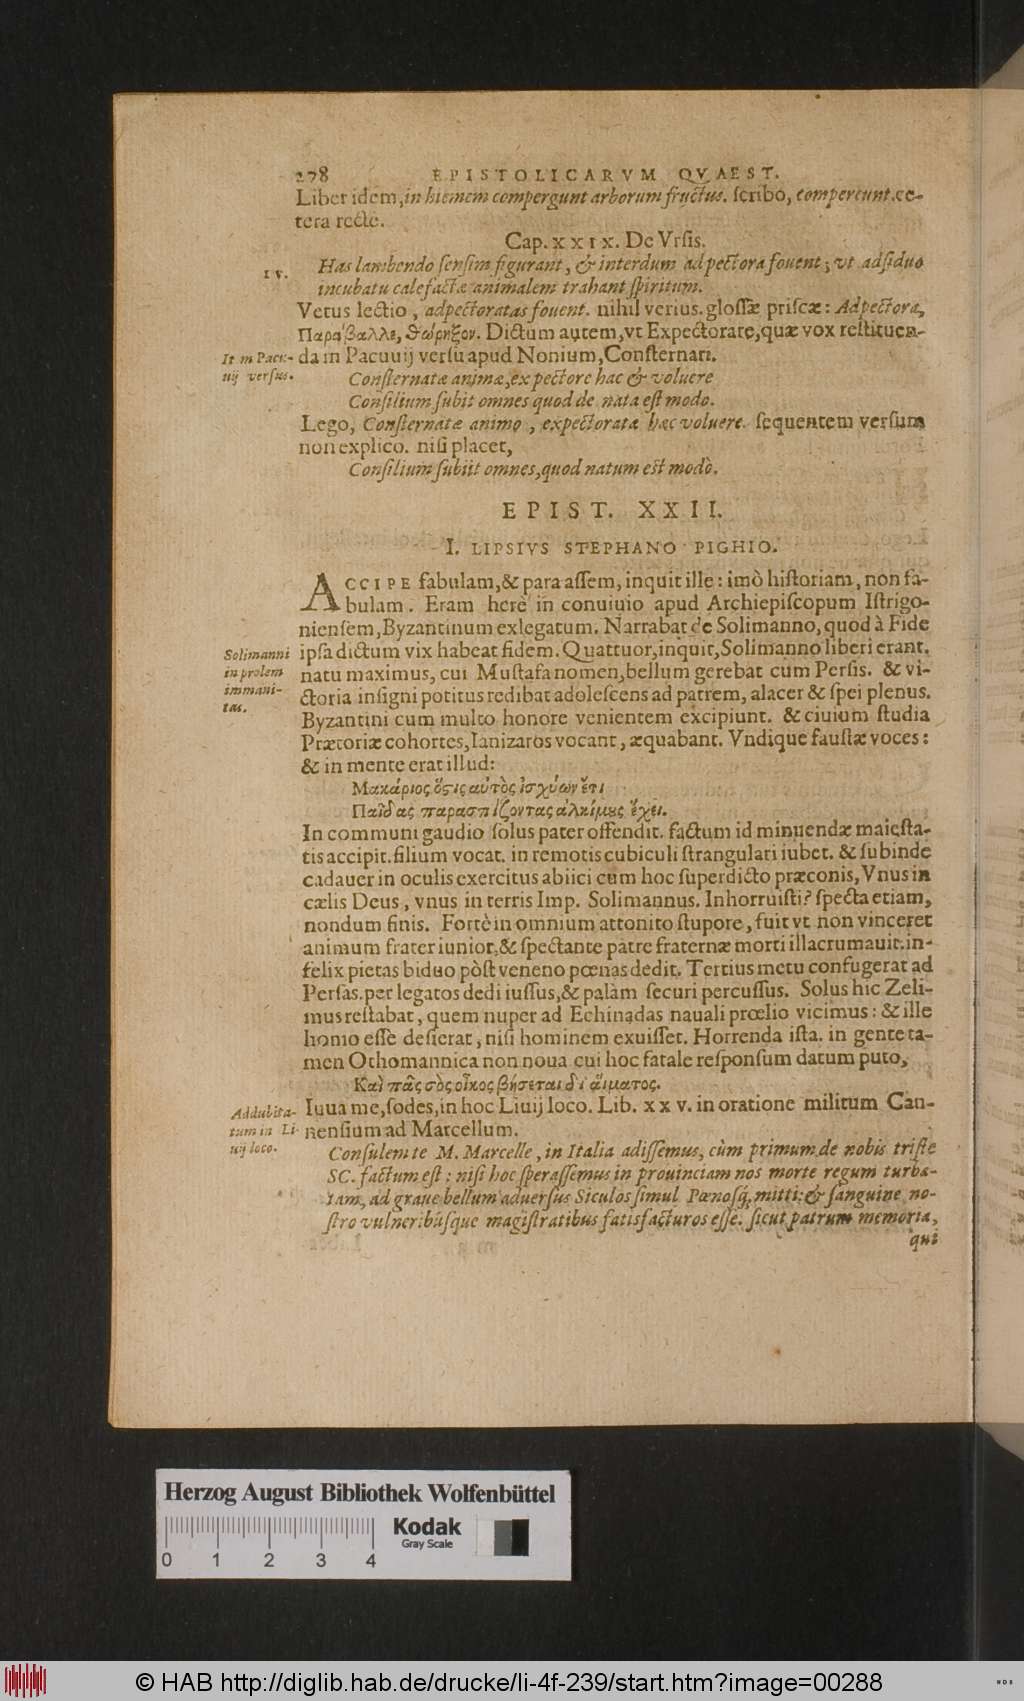 278 EPISTOLICARVM QVAEST.
Liber idem, in hiemem compergunt arborum fructus. scribo, compercunt. ce-
tera recte.
Cap. XXIX. De Vrsis.
IV.
Has lambendo sensim figurant, & interdum ad pectora fouent; vt adsiduo
incubatu calefactæ animalem trahant spiritum.
Vetus lectio, adpectoratas fouent. nihil verius. glossæ priscæ: Adpectora,
Παράβαλλε, θώρηξον. Dictum autem, vt Expectorare, quæ vox restituen-
It in Pacu- da in Pacuuij versu apud Nonium, Consternari.
uij versus.
Consternatæ animæ, ex pectore hac & voluere
Consilium subit omnes quod de nata est modo.
Lego, Consternatæ animo, expectoratæ hac voluere. sequentem versum
non explico. nisi placet,
Consilium subiit omnes, quod natum est modò.
EPIST. XXII.
I. LIPSIVS STEPHANO PIGHIO.
ACCIPE fabulam, & para assem, inquit ille: imò historiam, non fa-
bulam. Eram herè in conuiuio apud Archiepiscopum Istrigo-
niensem, Byzantinum exlegatum. Narrabat de Solimanno, quod à Fide
Solimanni ipsa dictum vix habeat fidem. Quattuor, inquit, Solimanno liberi erant.
in prolem natu maximus, cui Mustafa nomen, bellum gerebat cum Persis. & vi-
immani- ctoria insigni potitus redibat adolescens ad patrem, alacer & spei plenus.
tas.
Byzantini cum multo honore venientem excipiunt. & ciuium studia
Prætoriæ cohortes, Ianizaros vocant, æquabant. Vndique faustæ voces:
& in mente erat illud:
Μακάριος ὅστις αὐτὸς ἰσχύων ἔτι
Παῖδας παρασπίζοντας ἀλκίμους ἔχει.
In communi gaudio solus pater offendit. factum id minuendæ maiesta-
tis accipit. filium vocat. in remotis cubiculi strangulari iubet. & subinde
cadauer in oculis exercitus abiici cum hoc superdicto præconis, Vnus in
cælis Deus, vnus in terris Imp. Solimannus. Inhorruisti? specta etiam,
nondum finis. Fortè in omnium attonito stupore, fuit vt non vinceret
animum frater iunior, & spectante patre fraternæ morti illacrumauit. in-
felix pietas biduo pòst veneno pœnas dedit. Tertius metu confugerat ad
Persas. per legatos dedi iussus, & palàm securi percussus. Solus hic Zeli-
mus restabat, quem nuper ad Echinadas nauali prœlio vicimus: & ille
homo esse desierat, nisi hominem exuisset. Horrenda ista. in gente ta-
men Othomannica non noua cui hoc fatale responsum datum puto,
Καὶ πᾶς σὸς οἶκος βήσεται δι αἵματος.
Addubita- Iuua me, sodes, in hoc Liuij loco. Lib. XXV. in oratione militum Can-
tum in Li- nensium ad Marcellum.
uij loco.
Consulem te M. Marcelle, in Italia adissemus, cùm primum de nobis triste
SC. factum est; nisi hoc sperassemus in prouinciam nos morte regum turba-
tam, ad graue bellum aduersus Siculos simul Pœnosq́, mitti: & sanguine no-
stro vulneribúsque magistratibus satisfacturos esse. sicut patrum memoria,
qui
Herzog August Bibliothek Wolfenbüttel
0 1 2 3 4
Kodak
Gray Scale
© HAB http://diglib.hab.de/drucke/li-4f-239/start.htm?image=00288